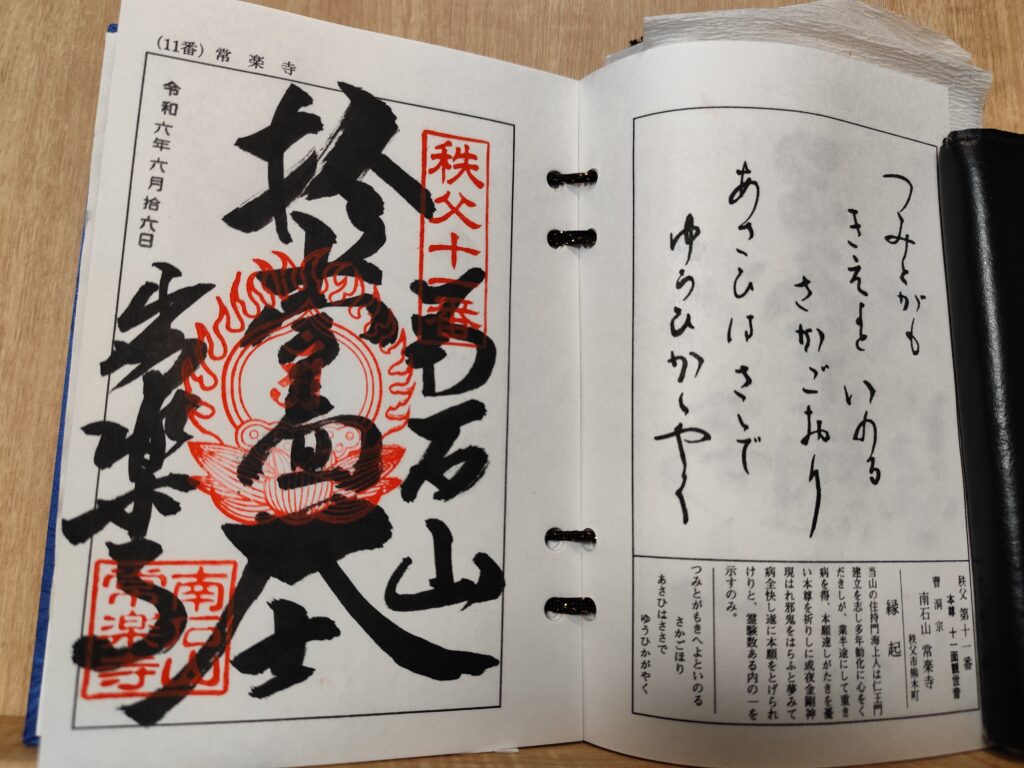 （11番）常楽寺
秩父十一番
南石山
令和六年六月拾六日
常楽寺
南石山
常楽寺
つみとがも
きえよといのる
さかごおり
あさひはさゝで
ゆうひかゝやく
秩父 第十一番
本尊 十一面観世音
曹洞宗
南石山 常楽寺
秩父市熊木町
縁起
当山の住持門海上人は仁王門
建立を志し多年勧化に心をく
だきしが、業半途にして重き
病を得、本願達しがたきを憂
い本尊を祈りしに或夜金剛神
現はれ邪鬼をはらふと夢みて
病全快し遂に本願をとげられ
けりと、霊験数ある内の一を
示すのみ。
つみとがもきへよといのる
さかごほり
あさひはささで
ゆうひかがやく